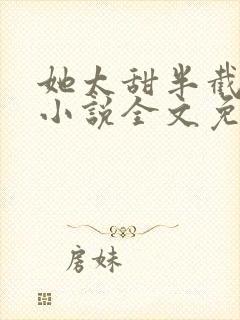 她太甜半截
小说全文免
房妹